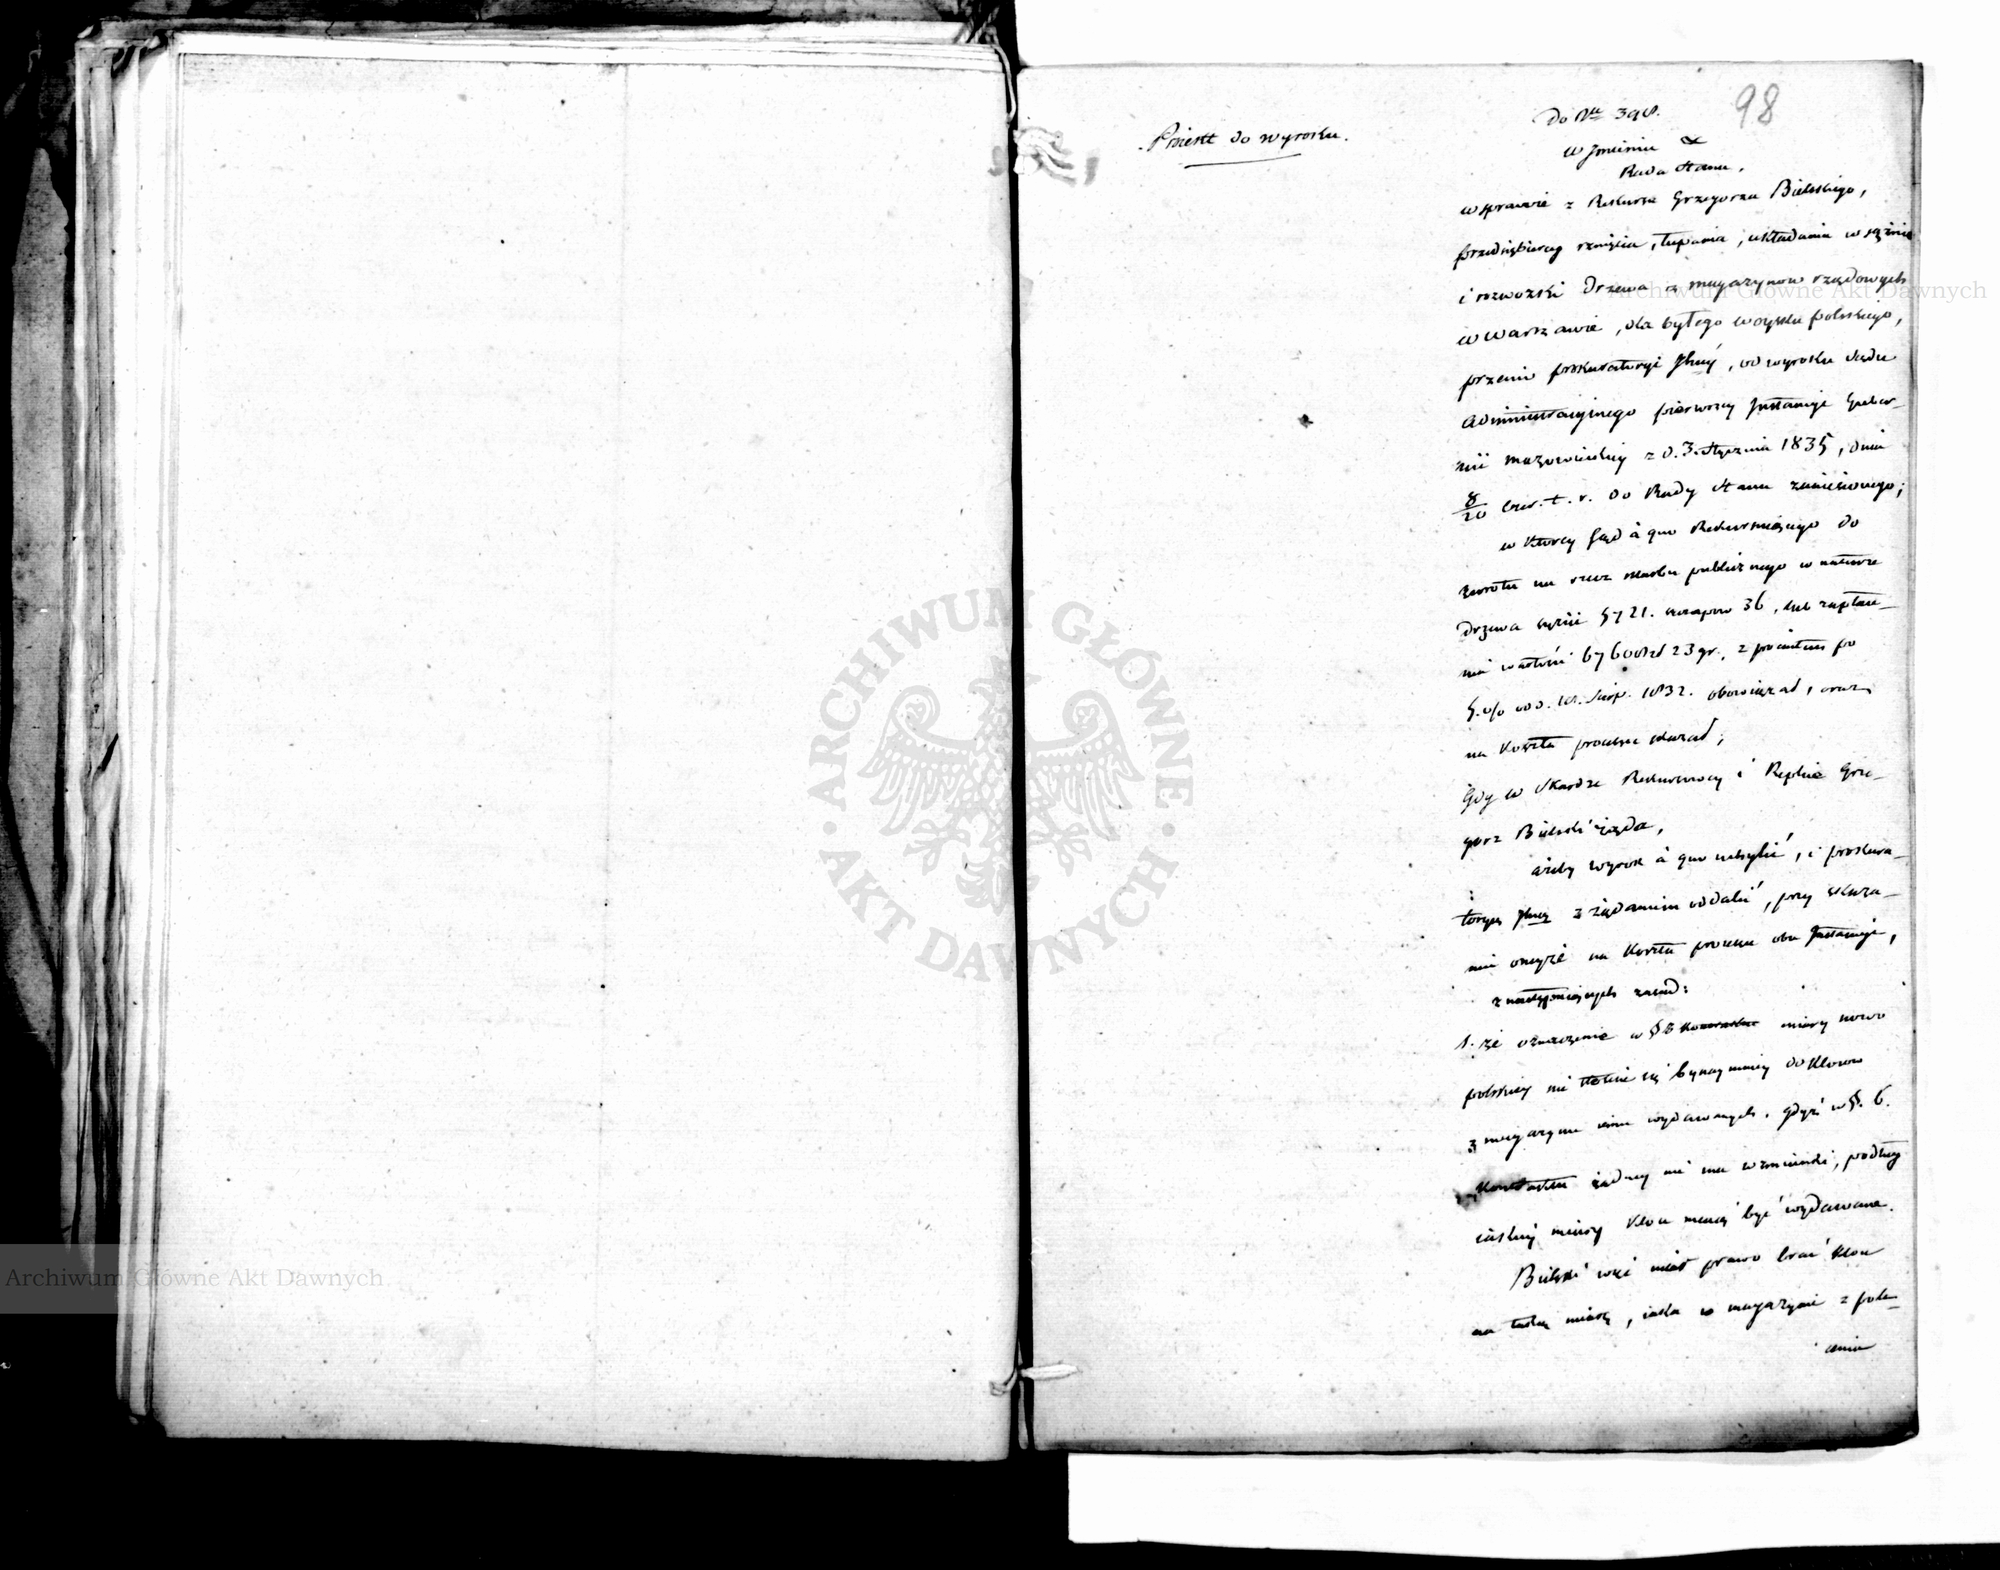 98
Do Nru 398.
Proiekt do wyroku.
w Imieniu &
Rada Stanu,
w sprawie z Rekursu Grzegorza Bielskiego,
przedsiębiercy rznięcia, łupania, układania w sążnie
i rozwózki drzewa z magazynów rządowych
w Warszawie, dla byłego woyska polskiego,
przeciw prokuratoryi Jlney, od wyroku Sądu
Administracyinego pierwszey Instancyi Guber-
nii Mazowieckiey z d. 3. Stycznia 1835, dnia
8/20 Czer. t. r. do Rady Stanu zaniesionego;
w którey Sąd à quo Rekursuiącego do
zwrotu na rzecz skarbu publicznego w naturze
drzewa sążni 5721. szczapów 36, lub zapłace-
nia wartości 67600 zł 23 gr., z procentem po
5.% od d. 10. Sierp. 1832. obowiązał, oraz
na koszta processu skazał;
Gdy w Skardze Rekursowey i Replice Grze-
gorz Bielski żąda,
ażeby wyrok à quo uchylić, i prokura-
toryą Jlną z żądaniem oddalić, przy skaza-
niu oneyże na koszta processu obu Instancyi,
z następuiących zasad:
1. że oznaczenie w § 3 kontraktu miary nowo
polskiey nie ściąga się bynaymniey do kloców
z magazynu iemu wydawanych, gdyż w §. 6.
Kontraktu żadney nie ma wzmianki, podług
iakiey miary kloce maią być wydawane.
Bielski więc miał prawo brać kloce
na taką miarę, iaka w magazynie z pole-
cenia
ARCHIWUM GŁÓWNE AKT DAWNYCH
Archiwum Główne Akt Dawnych
Archiwum Główne Akt Dawnych